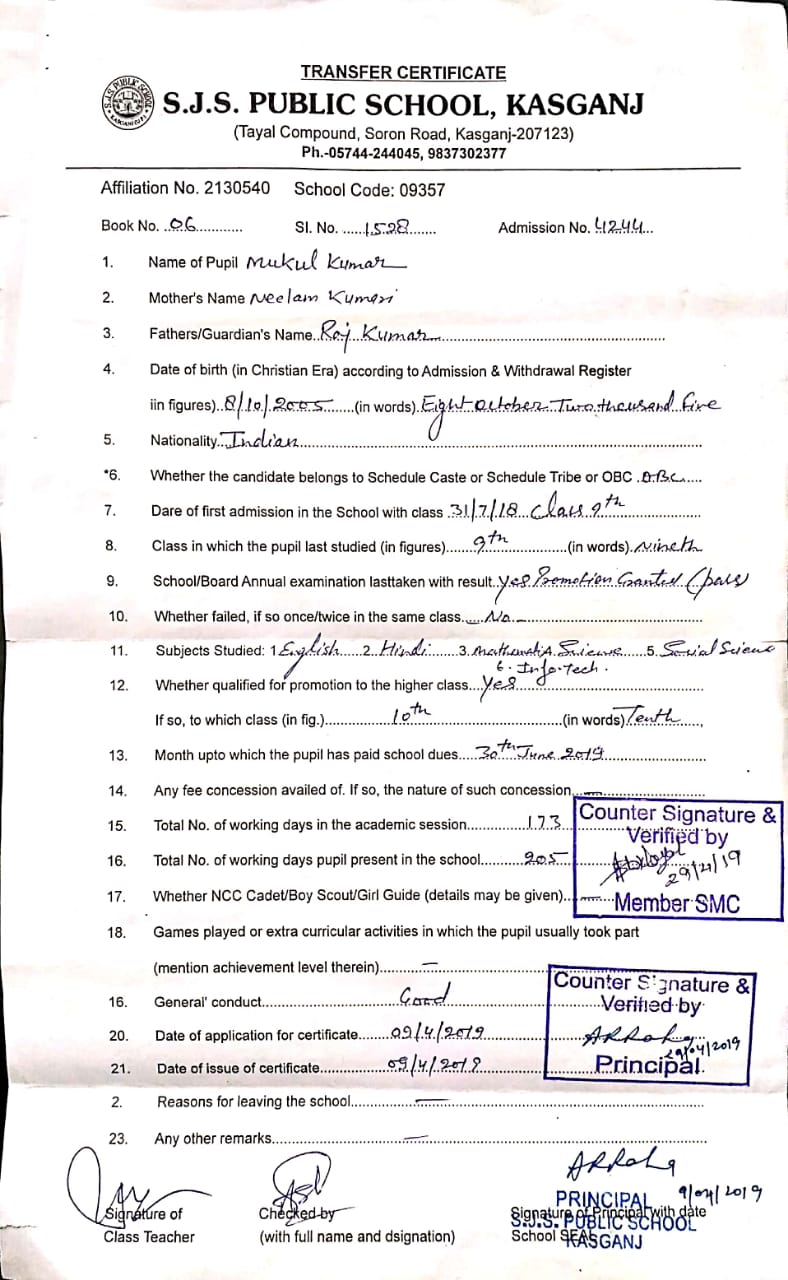 TRANSFER CERTIFICATE
S.J.S. PUBLIC SCHOOL, KASGANJ
(Tayal Compound, Soron Road, Kasganj-207123)
Ph.-05744-244045, 9837302377
Affiliation No. 2130540 School Code: 09357
Book No. 06 Sl. No. 1528 Admission No. 4244
1. Name of Pupil Mukul Kumar
2. Mother's Name Neelam Kumari
3. Fathers/Guardian's Name Raj Kumar
4. Date of birth (in Christian Era) according to Admission & Withdrawal Register
iin figures) 8/10/2005 (in words) Eight October Two thousand five
5. Nationality Indian
*6. Whether the candidate belongs to Schedule Caste or Schedule Tribe or OBC O.B.C.
7. Dare of first admission in the School with class 31/7/18 Class 9th
8. Class in which the pupil last studied (in figures) 9th (in words) Nineth
9. School/Board Annual examination lasttaken with result Yes Promotion Granted (pass
10. Whether failed, if so once/twice in the same class No
11. Subjects Studied: 1 English 2. Hindi 3. Mathematics 4. Science 5. Social Science
6. Info-Tech.
12. Whether qualified for promotion to the higher class Yes
If so, to which class (in fig.) 10th (in words) Tenth
13. Month upto which the pupil has paid school dues 30th June 2019
14. Any fee concession availed of. If so, the nature of such concession —
15. Total No. of working days in the academic session 173
16. Total No. of working days pupil present in the school 205
17. Whether NCC Cadet/Boy Scout/Girl Guide (details may be given) —
Counter Signature &
Verified by
29/4/19
Member SMC
18. Games played or extra curricular activities in which the pupil usually took part
(mention achievement level therein) —
16. General' conduct Good
20. Date of application for certificate 09/4/2019
21. Date of issue of certificate 09/4/2019
Counter Signature &
Verified by
29/04/2019
Principal
2. Reasons for leaving the school —
23. Any other remarks —
9/04/2019
Signature of
Class Teacher
Checked by
(with full name and dsignation)
PRINCIPAL
Signature of Principal with date
S.J.S. PUBLIC SCHOOL
School SEAL
KASGANJ